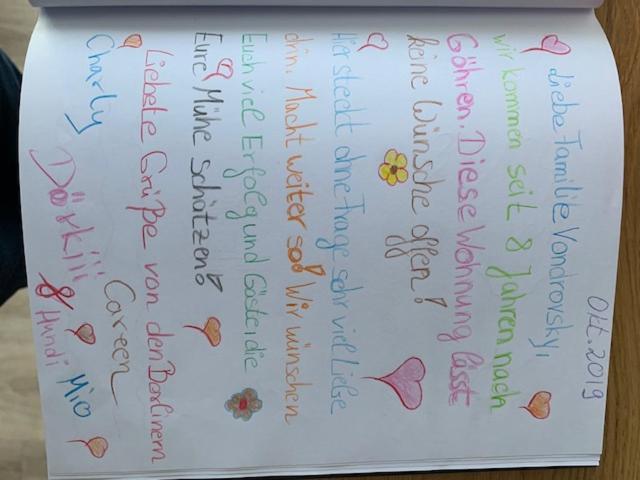 Okt. 2019
Liebe Familie Vondrovsky,
wir kommen seit 8 Jahren nach
Göhren. Diese Wohnung lässt
keine Wünsche offen!
Hier steckt ohne Frage sehr viel Liebe
drin. Macht weiter so! Wir wünschen
Euch viel Erfolg und Gäste, die
Eure Mühe schätzen!
Liebste Grüße von den Berlinern
Charly
Careen
Dörkiii
& Hundi Mio